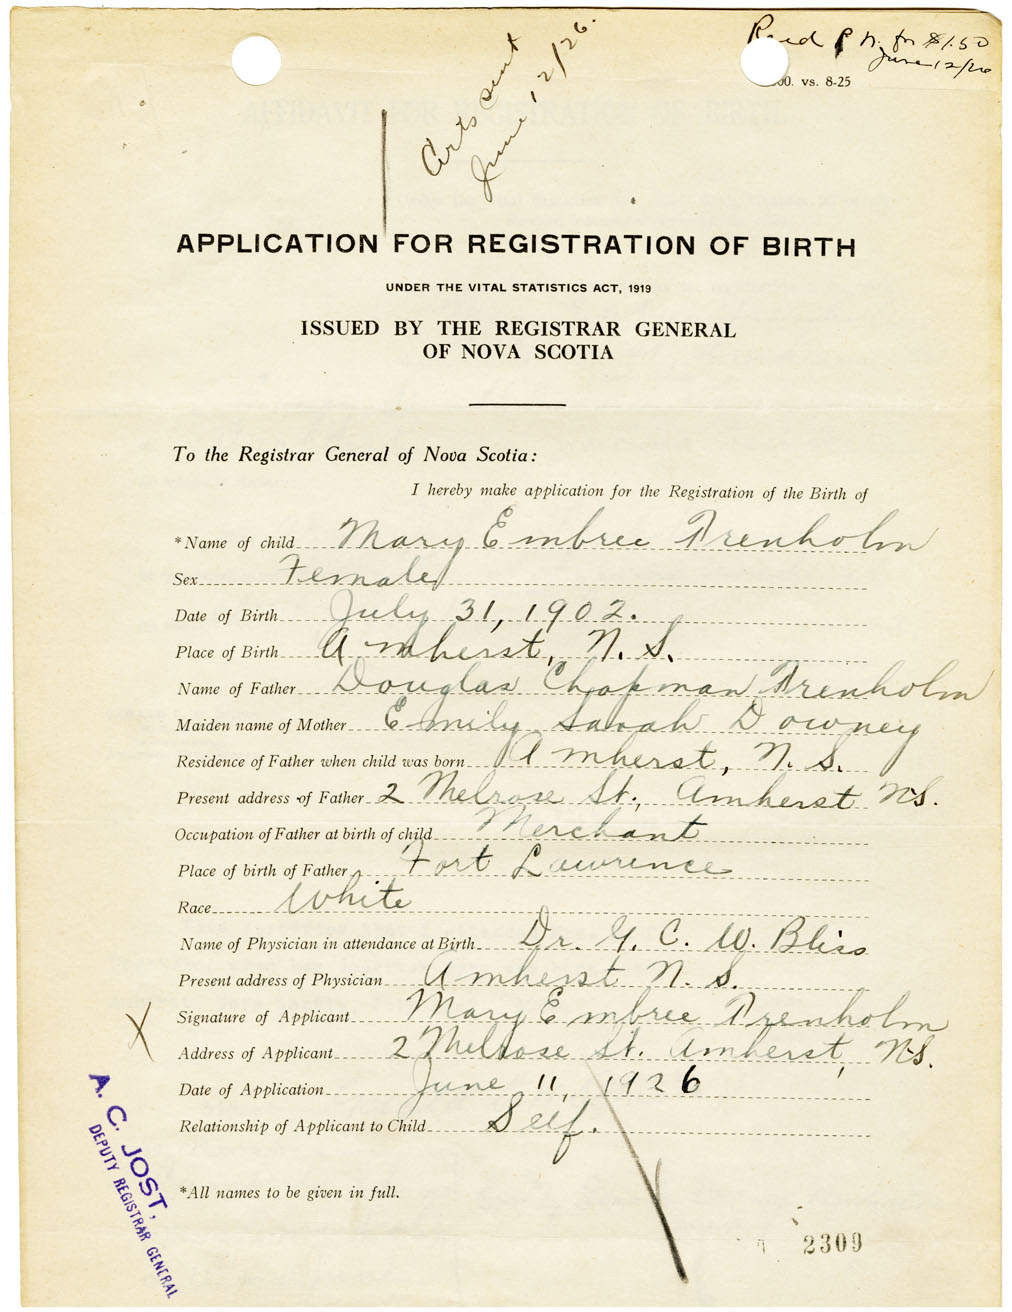 Certs sent
June 12/26.
Recd P. N. for $1.50
June 12/26
00. vs. 8-25
APPLICATION FOR REGISTRATION OF BIRTH
UNDER THE VITAL STATISTICS ACT, 1919
ISSUED BY THE REGISTRAR GENERAL
OF NOVA SCOTIA
To the Registrar General of Nova Scotia:
I hereby make application for the Registration of the Birth of
*Name of child Mary Embree Trenholm
Sex Female
Date of Birth July 31, 1902.
Place of Birth Amherst, N. S.
Name of Father Douglas Chapman Trenholm
Maiden name of Mother Emily Sarah Downey
Residence of Father when child was born Amherst, N. S.
Present address of Father 2 Melrose St., Amherst N.S.
Occupation of Father at birth of child Merchant
Place of birth of Father Fort Lawrence
Race White
Name of Physician in attendance at Birth Dr. G. C. W. Bliss
Present address of Physician Amherst N. S.
Signature of Applicant Mary Embree Trenholm
X
Address of Applicant 2 Melrose St. Amherst, N.S.
Date of Application June 11, 1926
Relationship of Applicant to Child Self.
A. C. JOST,
DEPUTY REGISTRAR GENERAL
*All names to be given in full.
2309